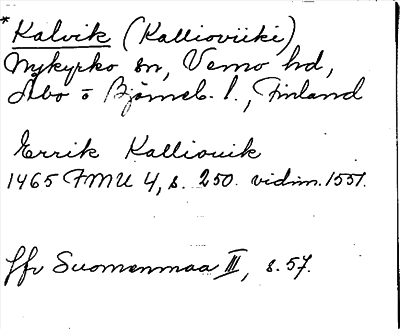 * Kalvik (Kallioviiki)
Nykyrko sn, Vemo hd,
Åbo o Björneb. l., Finland
Errik Kalliouik
1465 FMU 4, s. 250. vidim. 1551.
Jfr Suomenmaa III, s. 57.